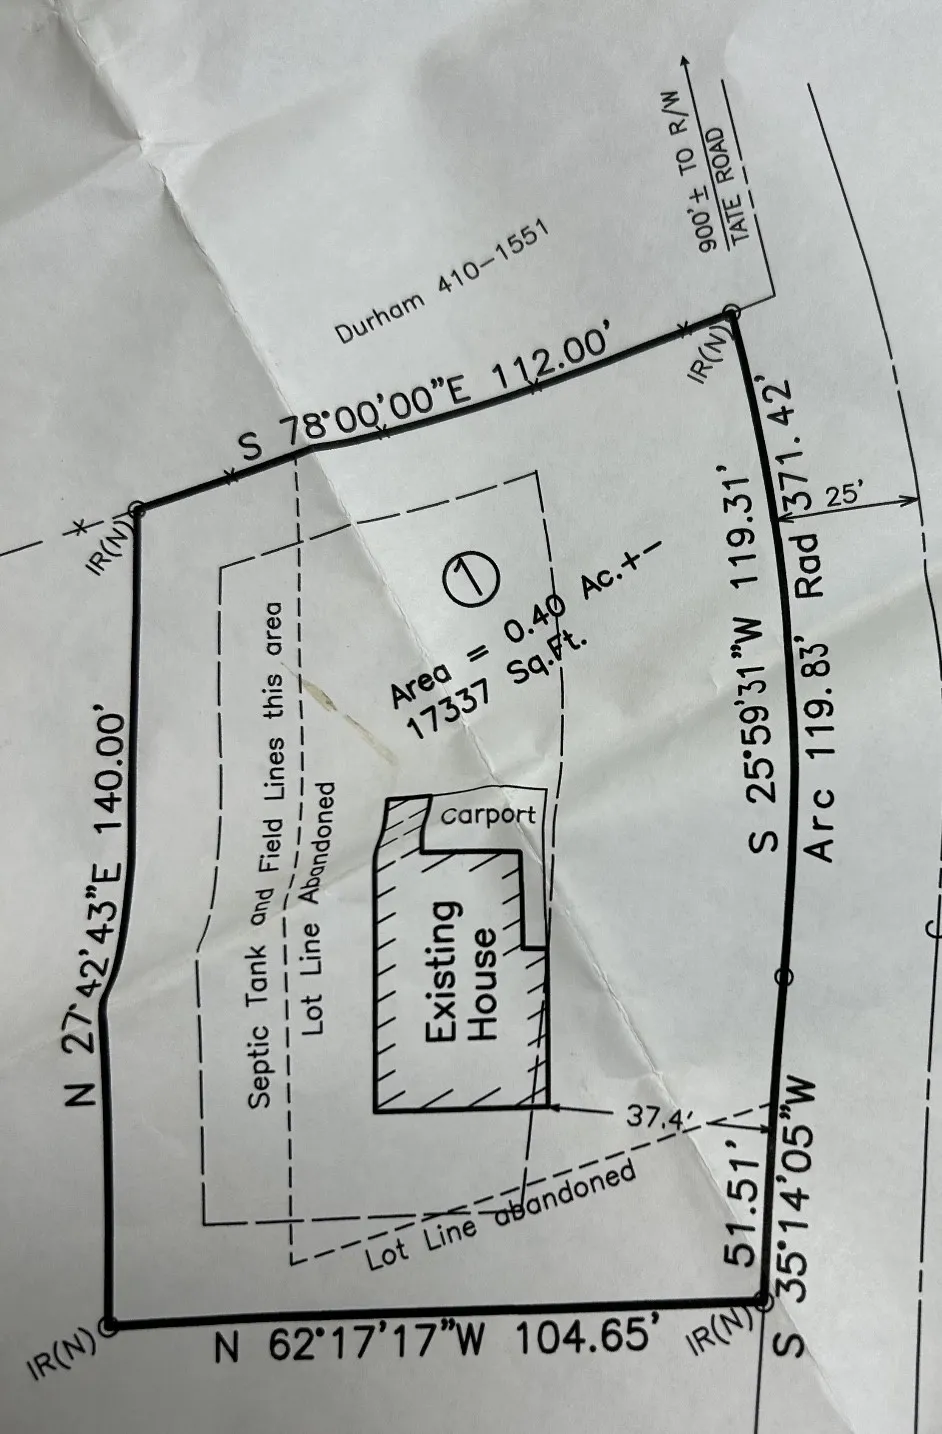 900'± TO R/W
TATE ROAD
Durham 410-1551
S 78°00'00"E 112.00'
IR(N)
IR(N)
N 27°42'43"E 140.00'
S 25°59'31"W 119.31'
Arc 119.83' Rad 371.42'
25'
1
Area = 0.40 Ac.+-
17337 Sq.Ft.
Septic Tank and Field Lines this area
Lot Line Abandoned
Carport
Existing
House
37.4'
Lot Line abandoned
51.51'
S 35°14'05"W
N 62°17'17"W 104.65'
IR(N)
IR(N)